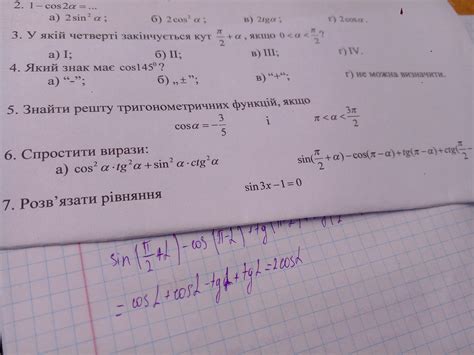 2. 1−cos2α = ...
а) 2sin²α; б) 2cos²α; в) 2tgα; г) 2cosα.
3. У якій четверті закінчується кут π/2 + α, якщо 0 < α < π/2?
а) I; б) II; в) III; г) IV.
4. Який знак має cos145°?
а) “-”; б) „±”; в) “+”; г) не можна визначити.
5. Знайти решту тригонометричних функцій, якщо
cosα = −3/5 і π < α < 3π/2
6. Спростити вирази:
а) cos²α·tg²α + sin²α·ctg²α sin(π/2 + α) − cos(π − α) + tg(π − α) + ctg(π/2 −
7. Розв’язати рівняння sin3x − 1 = 0
sin(π/2 + α) − cos(π − α) + tg(
= cosα + cosα − tgα + tgα = 2cosα